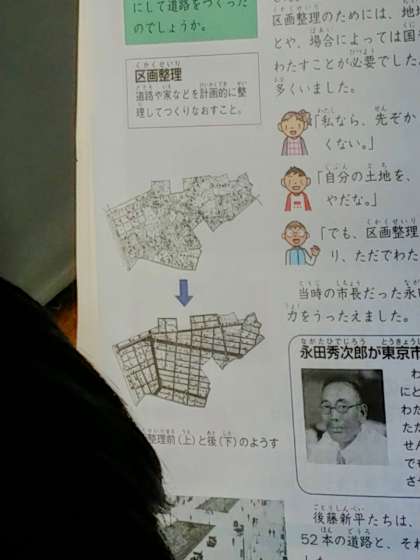 にして道路をつくった
のでしょうか。
区画整理
道路や家などを計画的に整
理してつくりなおすこと。
整理前(上)と後(下)のようす
区画整理のためには、
とや、場合によっては国
わたすことが必要でした。
多くいました。
「私なら、先ぞか
くない。」
「自分の土地を、
やだな。」
「でも、区画整理
り、ただでわた
当時の市長だった永
力をうったえました。
永田秀次郎が東京市
わ
にと
わた
ただ
せん
でも
さ
後藤新平たちは、
52本の道路と、それ